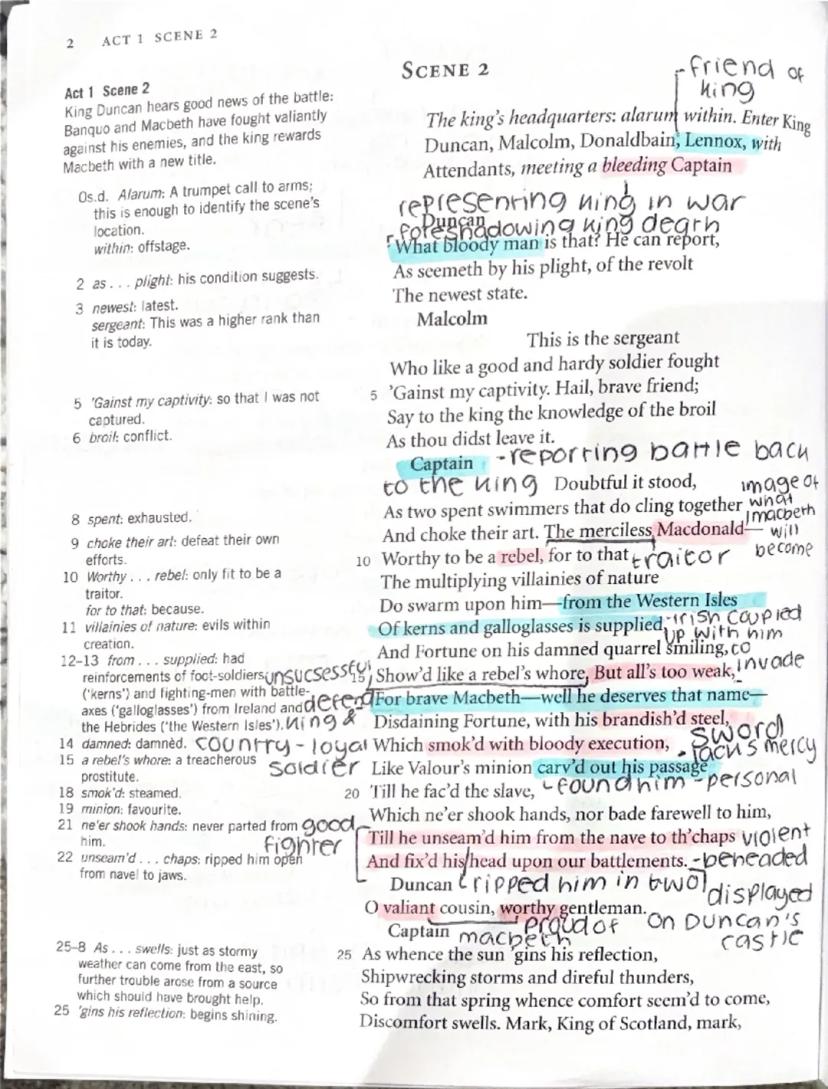 2 ACT 1 SCENE 2
Act 1 Scene 2
King Duncan hears good news of the battle:
Banquo and Macbeth have fought valiantly
against his enemies, and the king rewards
Macbeth with a new title.
0s.d. Alarum: A trumpet call to arms;
this is enough to identify the scene's
location.
within: offstage.
2 as . . . plight: his condition suggests.
3 newest: latest.
sergeant: This was a higher rank than
it is today.
5 'Gainst my captivity: so that I was not
captured.
6 broil: conflict.
8 spent: exhausted.
9 choke their art: defeat their own
efforts.
10 Worthy . . . rebel: only fit to be a
traitor.
for to that: because.
11 villainies of nature: evils within
creation.
12-13 from . . . supplied: had
reinforcements of foot-soldiers
('kerns') and fighting-men with battle-
axes ('galloglasses') from Ireland and
the Hebrides ('the Western Isles').
14 damned: damnèd.
15 a rebel's whore: a treacherous
prostitute.
18 smok'd: steamed.
19 minion: favourite.
21 ne'er shook hands: never parted from
him.
22 unseam'd . . . chaps: ripped him open
from navel to jaws.
25–8 As . . . swells: just as stormy
weather can come from the east, so
further trouble arose from a source
which should have brought help.
25 'gins his reflection: begins shining.
SCENE 2
friend of
king
The king's headquarters: alarum within. Enter King
Duncan, Malcolm, Donaldbain, Lennox, with
Attendants, meeting a bleeding Captain
representing king in war
Duncan
foreshadowing king death
What bloody man is that? He can report,
As seemeth by his plight, of the revolt
The newest state.
Malcolm
This is the sergeant
Who like a good and hardy soldier fought
5 'Gainst my captivity. Hail, brave friend;
Say to the king the knowledge of the broil
As thou didst leave it.
Captain - reporting battle back
to the king Doubtful it stood,
As two spent swimmers that do cling together
And choke their art. The merciless Macdonald
image of
what
macbeth
will
become
10 Worthy to be a rebel, for to that traitor
The multiplying villainies of nature
Do swarm upon him—from the Western Isles
Of kerns and galloglasses is supplied
- irish coupled
up with him
to
invade
And Fortune on his damned quarrel smiling,
15 Show'd like a rebel's whore, But all's too weak,
unsucsessful
For brave Macbeth—well he deserves that name—
defend
king &
country - loyal
soldier
Disdaining Fortune, with his brandish'd steel,
Which smok'd with bloody execution,
sword
- lacks mercy
Like Valour's minion carv'd out his passage
20 Till he fac'd the slave, found him - personal
Which ne'er shook hands, nor bade farewell to him,
good
fighter
Till he unseam'd him from the nave to th'chaps violent
And fix'd his head upon our battlements. - beheaded
Duncan ripped him in two
displayed
on Duncan's
castle
O valiant cousin, worthy gentleman.
Captain macbeth proud of
25 As whence the sun 'gins his reflection,
Shipwrecking storms and direful thunders,
So from that spring whence comfort seem'd to come,
Discomfort swells. Mark, King of Scotland, mark,